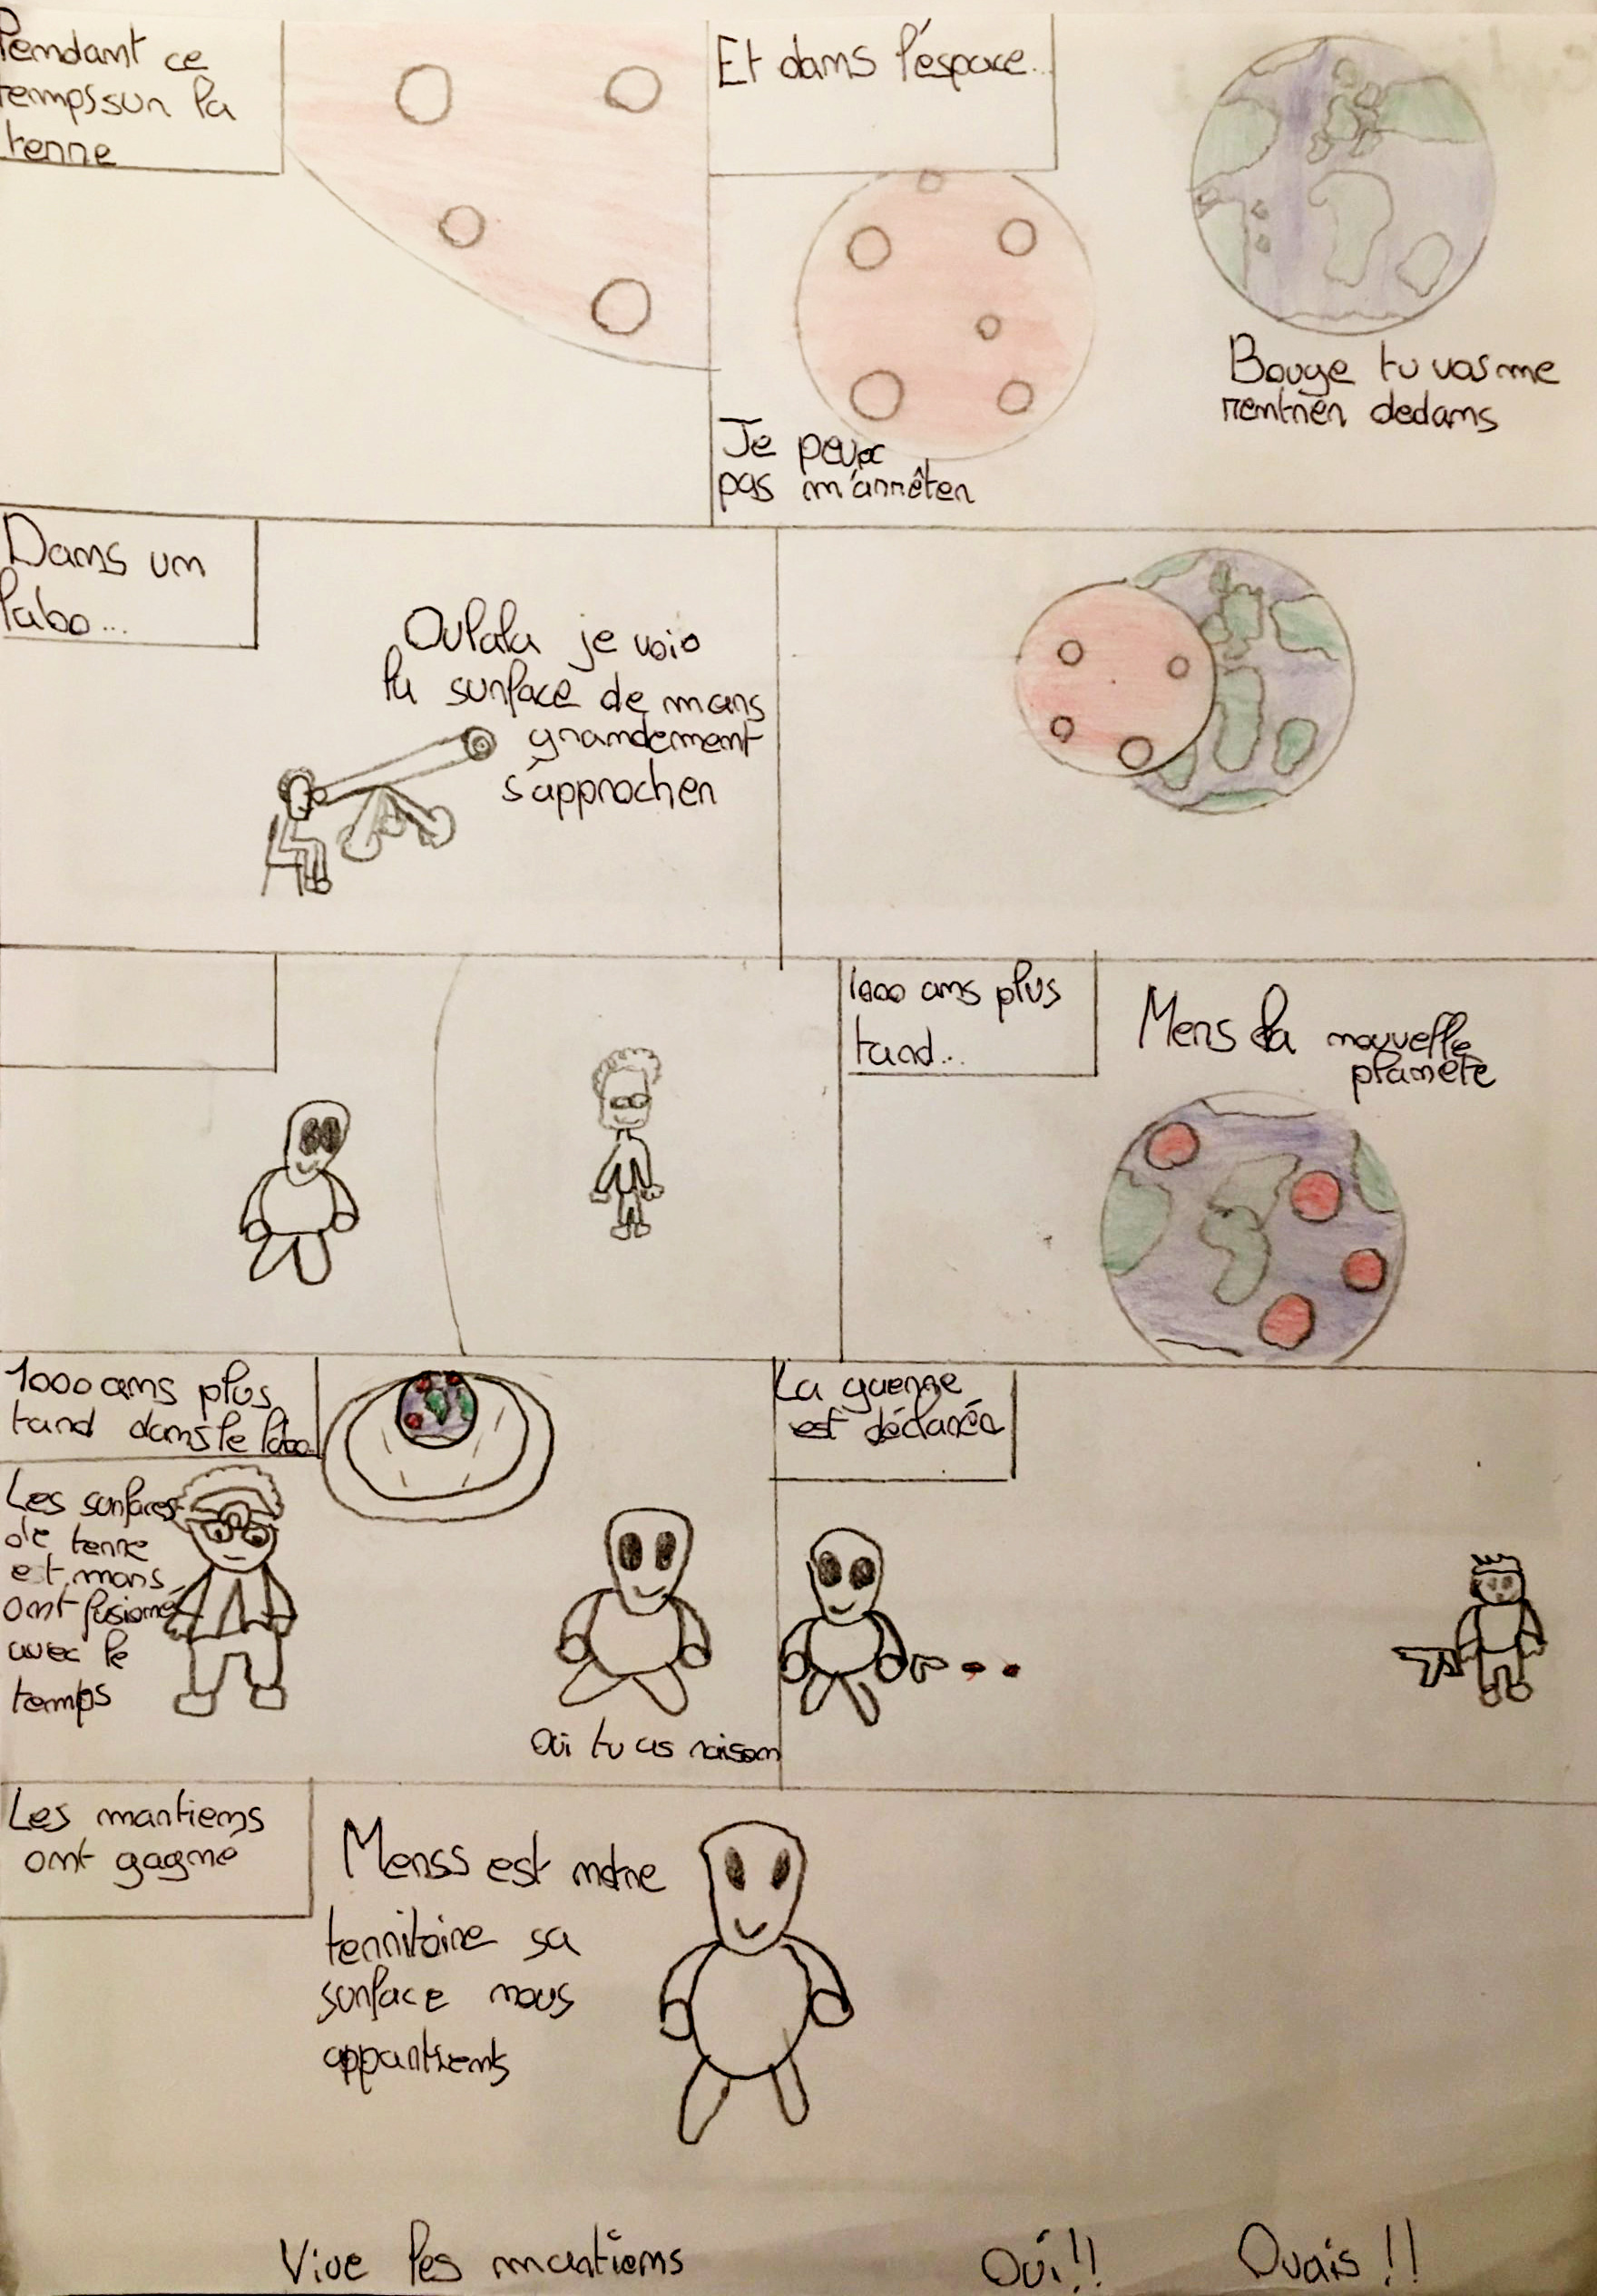 Pendant ce
temps sur la
terre
Et dans l'éspace...
Bouge tu vas me
rentrér dedans
Je peux
pas m'arrêter
Dans un
labo...
Oulala je vois
la surface de mars
grandement
s'approcher
1000 ans plus
tard...
Mers la nouvelle
planète
1000 ans plus
tard dans le labo
Les surfaces
de terre
et mars
ont fusionné
avec le
temps
Oui tu as raison
La guerre
est déclarée
Les martiens
ont gagné
Merss est notre
territoire sa
surface nous
appartients
Vive les martiens
Oui!!
Ouais!!